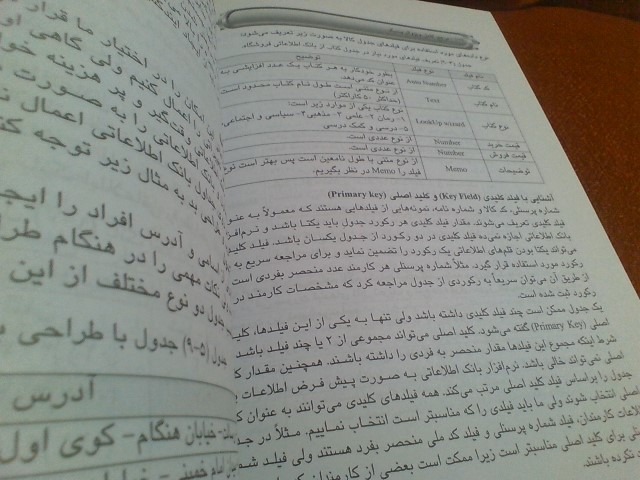 نوع داده‌های مورد استفاده برای فیلدهای جدول کالا به صورت زیر تعریف می‌شود:
تعریف فیلدهای مورد نیاز در جدول کالا از بانک اطلاعاتی فروشگاه
نام فیلد نوع فیلد توضیح
کد کتاب Auto Number بطور خودکار به هر کتاب یک عدد افزایشی به عنوان کد می‌دهد.
نام کتاب Text از نوع متنی است طول نام کتاب محدود است (حداکثر کاراکتر)
نوع کتاب LookUp wizard نوع کتاب یکی از موارد زیر است:
۱- رمان ۲- علمی ۳- مذهبی ۴- سیاسی و اجتماعی،
۵- درسی و کمک درسی
قیمت خرید Number از نوع عددی است.
قیمت فروش Number از نوع عددی است.
توضیحات Memo از نوع متنی با طول نامعین است پس بهتر است نوع فیلد را Memo در نظر بگیریم.
آشنایی با فیلد کلیدی (Key Field) و کلید اصلی (Primary key)
شماره پرسنلی، کد کالا و شماره نامه، نمونه‌هایی از فیلدهایی هستند که معمولاً به عنو
فیلد کلیدی تعریف می‌شوند. مقدار فیلد کلیدی هر رکورد جدول باید یکتا باشد و نرم‌افز
بانک اطلاعاتی اجازه نمی‌ده فیلد کلیدی در دو رکورد از جدول یکسان باشد. فیلد کلید
می‌تواند یکتا بودن قلم‌های اطلاعاتی یک رکورد را تضمین نماید و برای مراجعه سریع به
رکورد مورد استفاده قرار گیرد. مثلاً شماره پرسنلی هر کارمند عدد منحصر بفردی است
از طریق آن می‌توان سریعاً به رکوردی از جدول مراجعه کرد که مشخصات کارمند در
رکورد ثبت شده است.
یک جدول ممکن است چند فیلد کلیدی داشته باشد ولی تنها به یکی از این فیلدها، کلید
اصلی (Primary Key) گفته می‌شود. کلید اصلی می‌تواند مجموعی از ۲ یا چند فیلد باشد
شرط اینکه مجموع این فیلدها مقدار منحصر به فردی را داشته باشند. همچنین مقدار ک
اصلی نمی‌تواند خالی باشد. نرم‌افزار بانک اطلاعاتی به صورت پیش فرض اطلاعات
جدول را براساس فیلد کلید اصلی مرتب می‌کند. همه فیلدهای کلیدی می‌توانند به عنوان ک
اصلی انتخاب شوند ولی ما باید فیلدی را که مناسبتر است انتخاب نماییم. مثلاً در جد
اطلاعات کارمندان، فیلد شماره پرسنلی و فیلد کد ملی منحصر بفرد هستند ولی فیلد شم
برای کلید اصلی مناسبتر است زیرا ممکن است بعضی از کارمندان
نکرده باشند.
این امکان را در اختیار ما قرار
را اعمال کنیم ولی گاهی او
وقتگیر و پر هزینه خوا
اطلاعاتی را به صورت
بانک اطلاعاتی اعمال
به مثال زیر توجه کن
اسامی و آدرس افراد را ایجا
مکان مهمی را در هنگام طرا
جدول دو نوع مختلف از این
جدول (۵-۹) جدول با طراحی
آدرس
خیابان هنگام- کوی اول
امام خمینی- خیابان